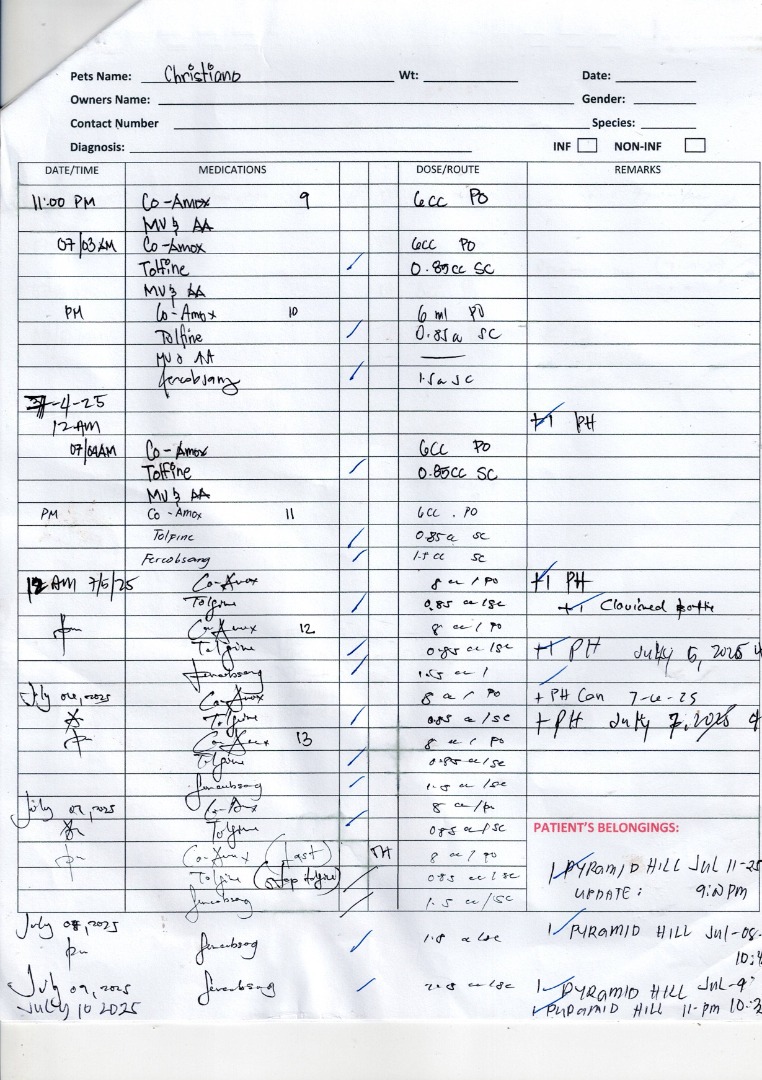 Pets Name: Christiano Wt: Date:
Owners Name: Gender:
Contact Number Species:
Diagnosis: INF NON-INF
DATE/TIME MEDICATIONS DOSE/ROUTE REMARKS
11:00 PM Co-Amox 9 6cc PO
MV & AA
07/03 AM Co-Amox 6cc PO
Tolfine 0.85cc SC
MV & AA
PM Co-Amox 10 6 ml PO
Tolfine 0.85a SC
MV & AA
fercobsang 1.5a SC
-4-25
12AM +1 PH
07/04 AM Co-Amox 6cc PO
Tolfine 0.85cc SC
MV & AA
PM Co-Amox 11 6cc . PO
Tolfine 0.85a SC
Fercobsang 1.5cc SC
12 AM 7/5/25 Co-Amox 8 cc / PO +1 PH
Tolfine 0.85 cc/sc +1
pm Co-Amox 12 8 cc / PO
Tolfine 0.85 cc/sc +1 PH July 6, 2025
fercobsang 1.5 cc /
July 06, 2025 Co-Amox 8 cc / PO + PH Can 7-6-25
Tolfine 0.85 cc/sc +PH July 7, 2025
pm Co-Amox 13 8 cc / PO
Tolfine 0.85 cc/sc
fercobsang 1.5 cc/sc
July 07, 2025 Co-Amox 8 cc/po
Tolfine 0.85 cc/sc PATIENT'S BELONGINGS:
pm Co-Amox (last) 8 cc / PO 1 PYRAMID HILL Jul 11-25
Tolfine (stop tolfine) 0.85 cc/sc UPDATE:
fercobsang 1.5 cc/sc
July 08, 2025 1 PYRAMID HILL Jul-08-
pm fercobsang 1.5 cc/sc
July 09, 2025 fercobsang cc/sc 1 PYRAMID HILL Jul-9
July 10 2025 1 PYRAMID HILL 11-pm